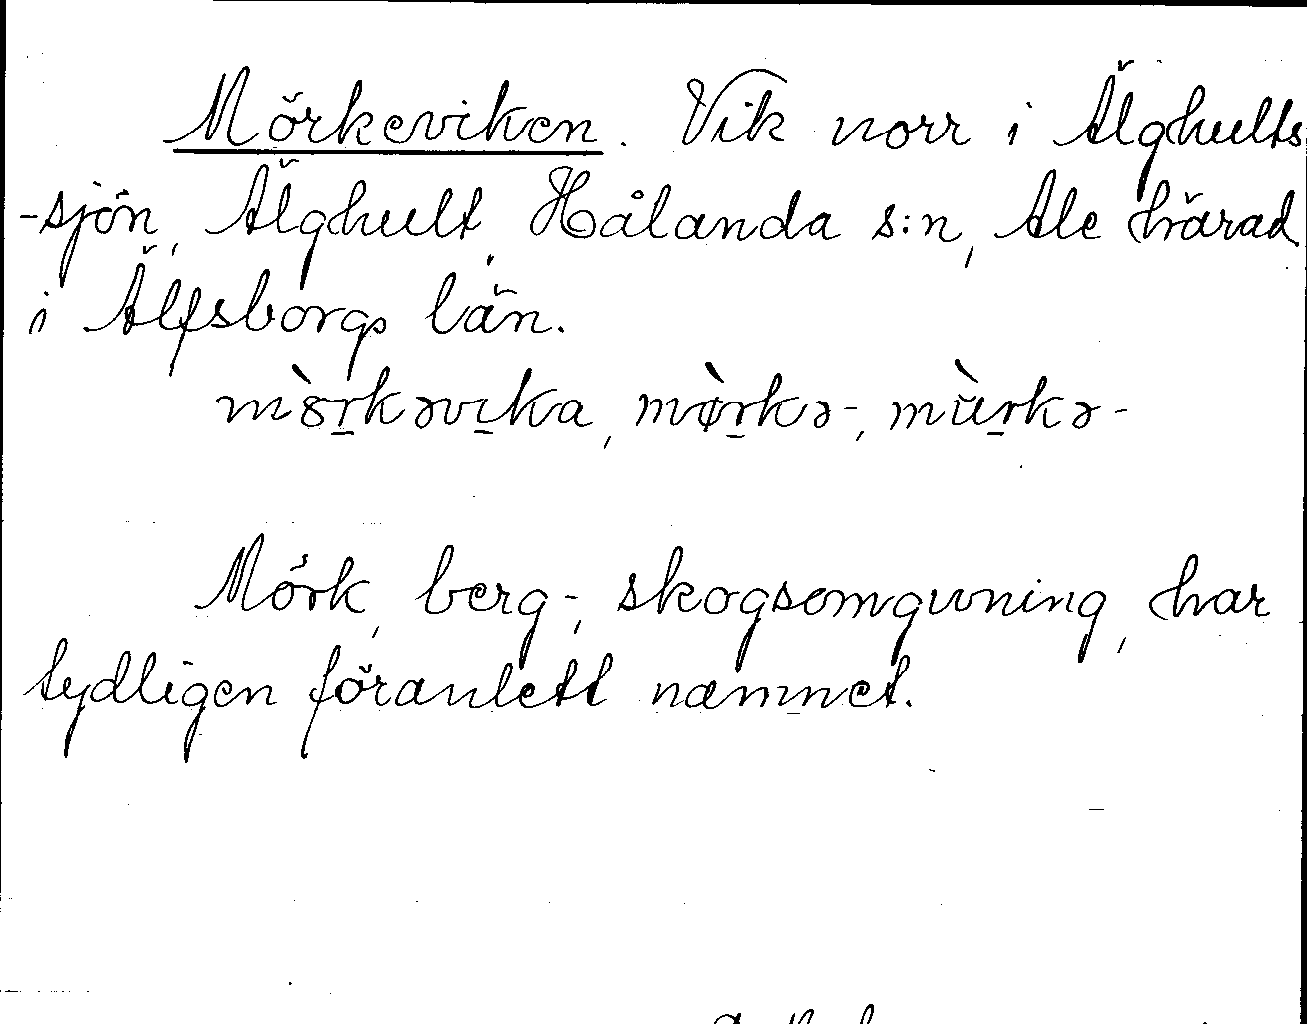 Mörkeviken. Vik norr i Älghults
-sjön, Älghult, Hålanda s:n, Ale härad
i Älfsborgs län.
mö̀rkəvɪka, mø̀rkə-, mùrkə-
Mörk, berg-, skogsomgivning, har
tydligen föranlett namnet.